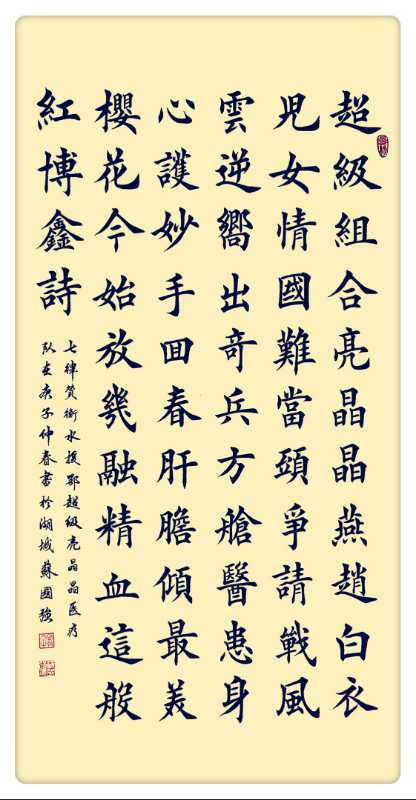 超級組合亮晶晶燕趙白衣
児女情國難當頭爭請戰風
雲逆嚮出奇兵方艙醫患身
心護妙手回春肝膽傾最美
櫻花今始放幾融精血這般
紅博鑫詩
七律贊衡水援鄂超級亮晶晶医疗
队在庚子仲春書於湖城蘇國強